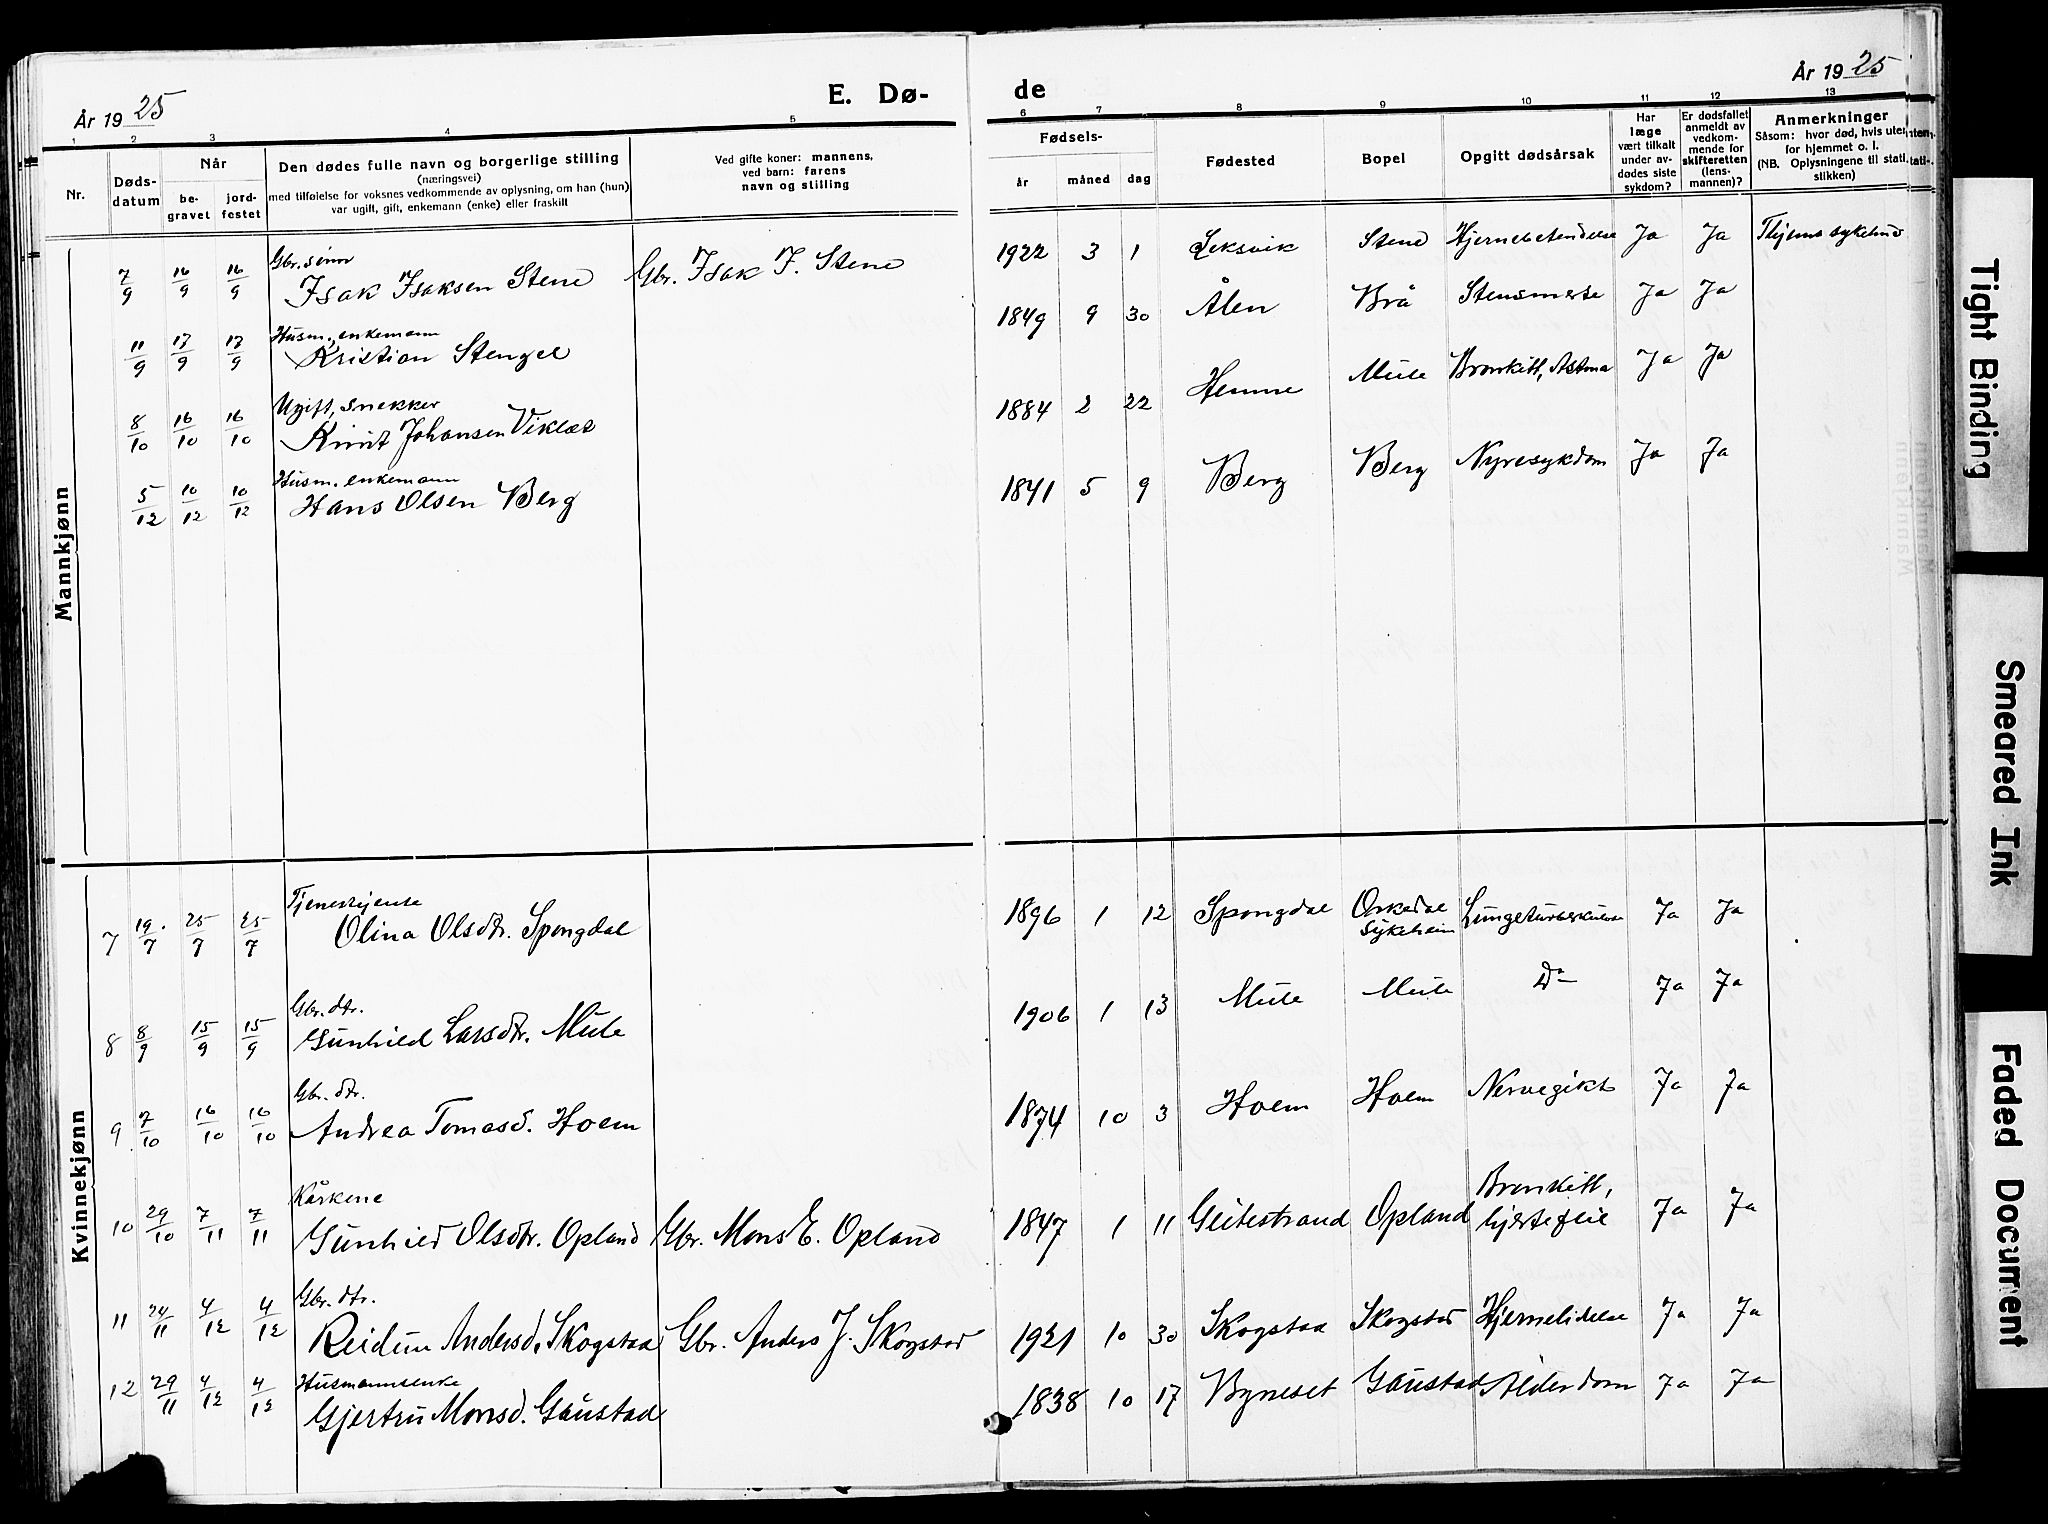 År 1925
E. Dø-
de
År 1925
1 2 3 4 5 6 7 8 9 10 11 12 13
Nr.
Døds-
datum
Når
be-
gravet
jord-
festet
Den dødes fulle navn og borgerlige stilling
(næringsvei)
med tilføielse for voksnes vedkommende av oplysning, om han (hun)
var ugift, gift, enkemann (enke) eller fraskilt
Ved gifte koner: mannens,
ved barn: farens
navn og stilling
Fødsels-
år måned dag
Fødested
Bopel
Opgitt dødsårsak
Har
læge
vært tilkalt
under av-
dødes siste
sykdom?
Er dødsfallet
anmeldt av
vedkom-
mende for
skifteretten
(lens-
mannen)?
Anmerkninger
Såsom: hvor død, hvis uten-
for hjemmet o. l.
(NB. Oplysningene til stati-
stikken)
Mannkjønn
Gbr. sønn
7/9 16/9 16/9 Isak Isaksen Stene Gbr. Isak J. Stene 1922 3 1 Leksvik Stene Hjernebetendelse Ja Ja sykehus
Husm., enkemann
11/9 17/9 17/9 Kristian Stengel 1849 9 30 Ålen Brå Stensmerte Ja Ja
Ugift, snekker
8/10 16/10 16/10 Knut Johansen Viklas 1884 2 22 Hemne Mule Bronkitt, Astma Ja Ja
Husm. enkemann
5/12 10/12 10/12 Hans Olsen Berg 1841 5 9 Berg Berg Nyresykdom Ja Ja
Kvinnekjønn
Tjenestejente
7 19/7 25/7 25/7 Olina Olsdtr. Spongdal 1896 1 12 Spongdal Orkedal Sykeheim Lungetuberkulose Ja Ja
Gbr. dtr.
8 8/9 15/9 15/9 Gunhild Larsdtr. Mule 1906 1 13 Mule Mule Do Ja Ja
Gbr. dtr.
9 7/10 16/10 16/10 Andrea Tomasd. Hoem 1874 10 3 Hoem Hoem Nervegikt Ja Ja
Kårkone
10 29/10 7/11 7/11 Gunhild Olsdtr. Opland Gbr. Mons E. Opland 1847 1 11 Geitestrand Opland Bronkitt, hjertefeil Ja Ja
Gbr. dtr.
11 24/11 4/12 4/12 Reidun Andersd. Skogstad Gbr. Anders J. Skogstad 1921 10 30 Skogstad Skogstad Hjernelidelse Ja Ja
Husmannsenke
12 29/11 4/12 4/12 Gjertru Monsd. Gaustad 1838 10 17 Byneset Gaustad Alderdom Ja Ja
Tight Binding
Smeared Ink
Faded Document